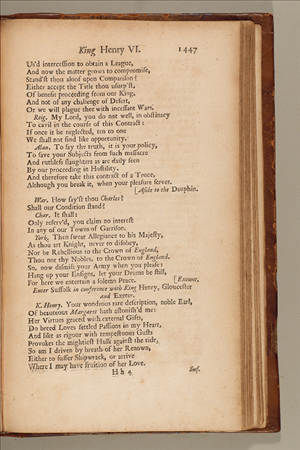 King Henry VI. 1447
Us'd intercession to obtain a League,
And now the matter grows to compromise,
Stand'st thou aloof upon Comparison?
Either accept the Title thou usurp'st,
Of benefit proceeding from our King,
And not of any challenge of Desert,
Or we will plague thee with incessant Wars.
Reig. My Lord, you do not well, in obstinacy
To cavil in the course of this Contract:
If once it be neglected, ten to one
We shall not find like opportunity.
Alan. To say the truth, it is your policy,
To save your Subjects from such massacre
And ruthless slaughters as are daily seen
By our proceeding in Hostility.
And therefore take this contract of a Truce,
Although you break it, when your pleasure serves.
[Aside to the Dauphin.
War. How say'st thou Charles?
Shall our Condition stand?
Char. It shall:
Only reserv'd, you claim no interest
In any of our Towns of Garrison.
York. Then swear Allegiance to his Majesty,
As thou art Knight, never to disobey,
Nor be Rebellious to the Crown of England,
Thou nor thy Nobles, to the Crown of England.
So, now dismiss your Army when you please:
Hang up your Ensigns, let your Drums be still,
For here we entertain a solemn Peace. [Exeunt.
Enter Suffolk in conference with King Henry, Gloucester
and Exeter.
K. Henry. Your wondrous rare description, noble Earl,
Of beauteous Margaret hath astonish'd me:
Her Virtues graced with external Gifts,
Do breed Loves settled Passions in my Heart,
And like as rigour with tempestuous Gusts
Provokes the mightiest Hulk against the tide,
So am I driven by breath of her Renown,
Either to suffer Shipwrack, or arrive
Where I may have fruition of her Love.
H h 4 Suf.